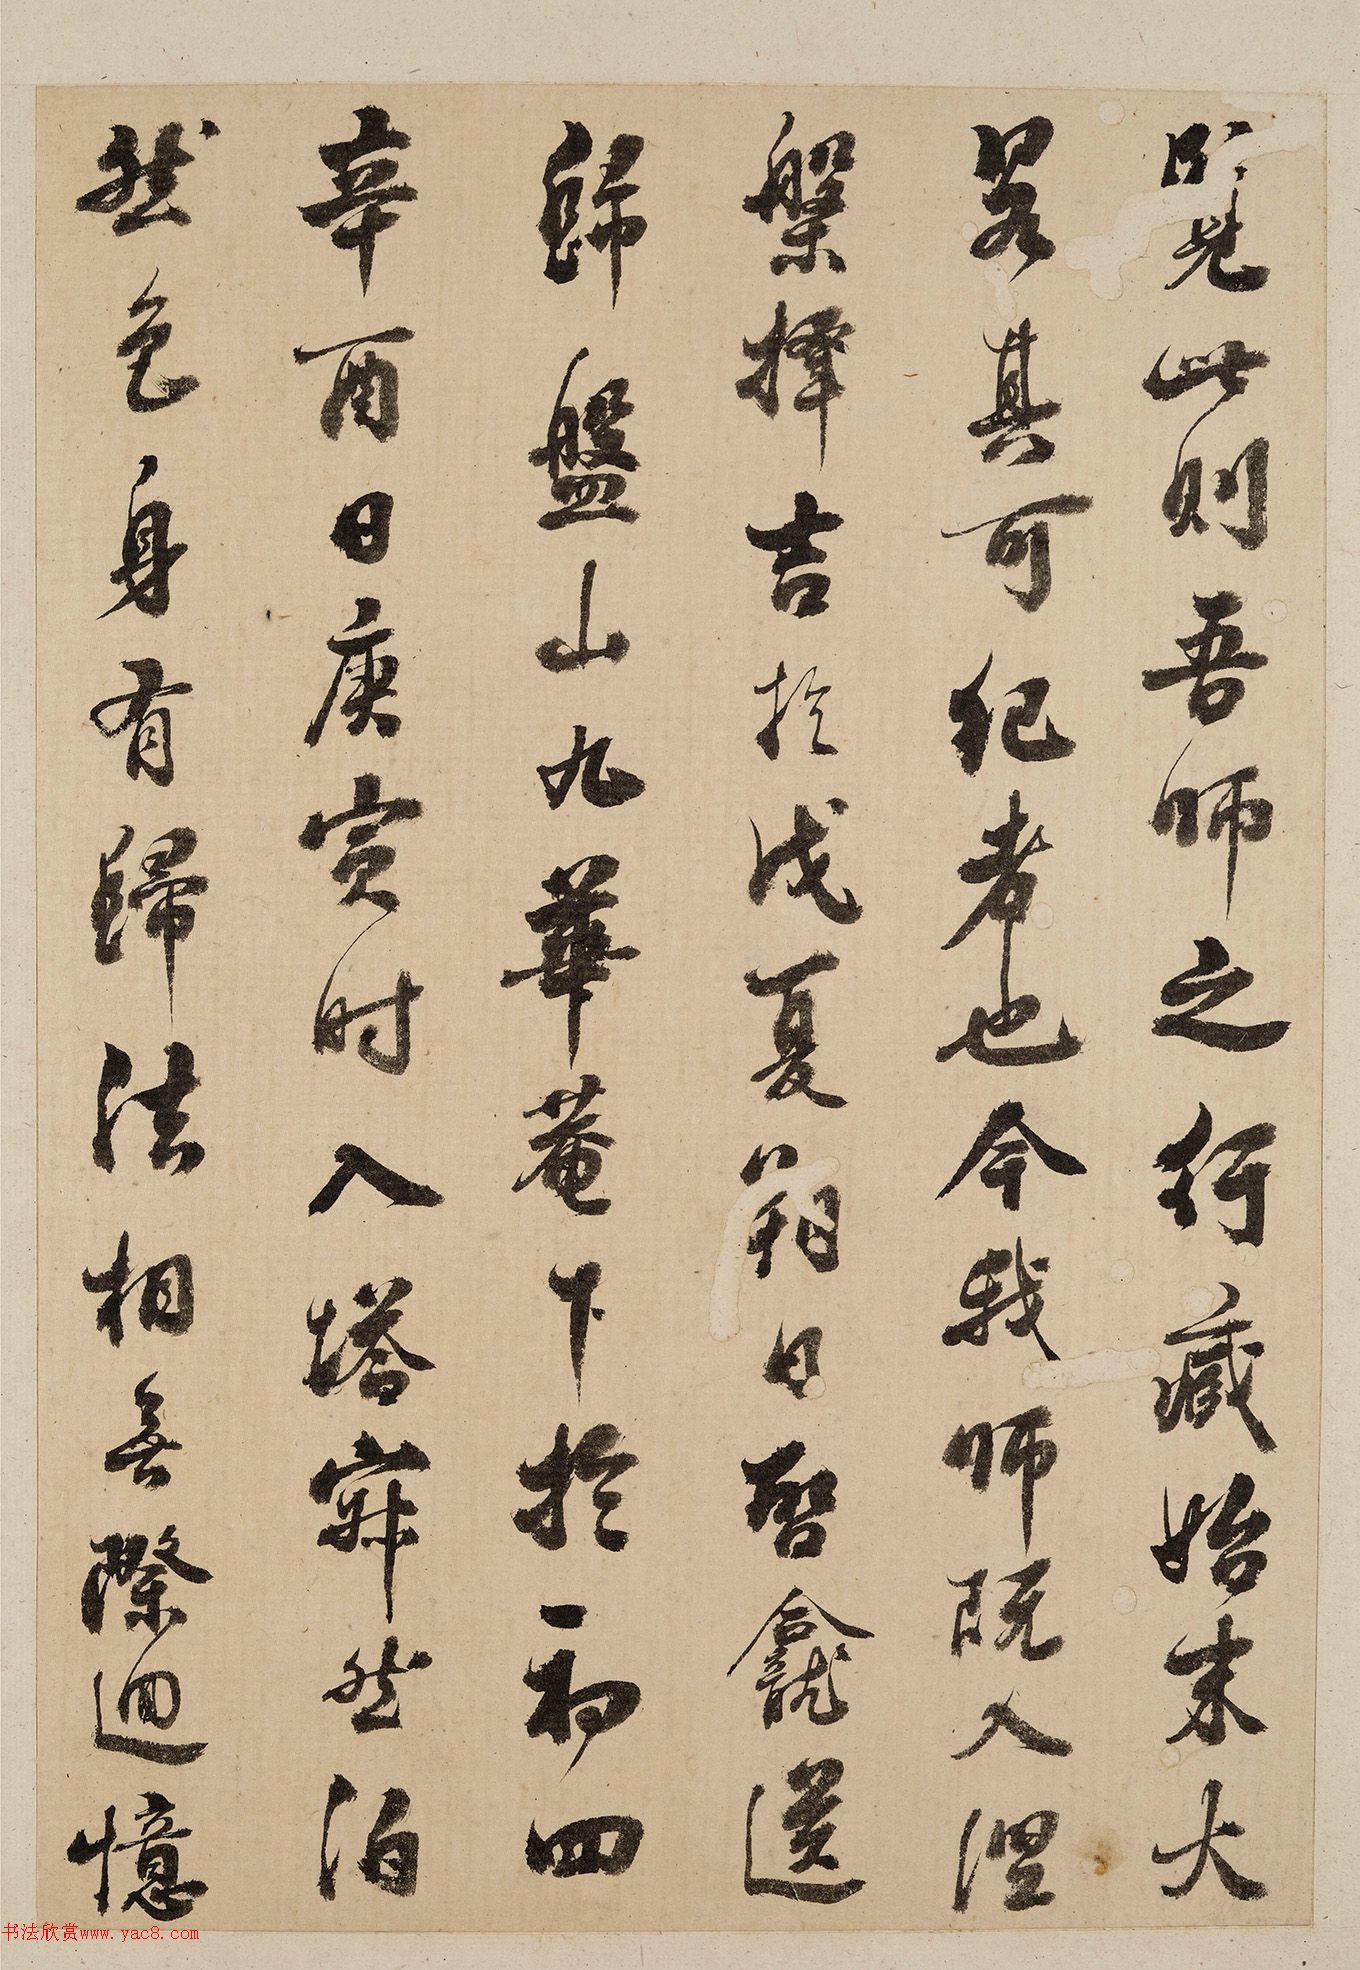 覽此則吾師之行藏始末大
畧其可紀者也今我師既入涅
槃擇吉於戊夏朔日啓龕送
歸盤山九華菴下於初四
辛酉日庚寅时入塔寂然泊
然色身有歸法相無際迴憶
书法欣赏www.yac8.com